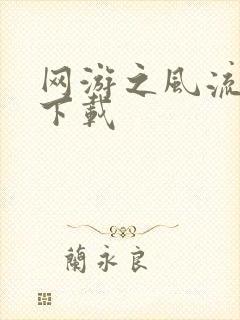 网游之風流
下載
蘭永良